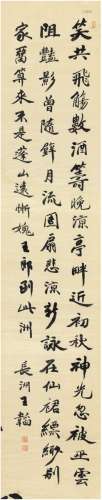 笑共飛觴數酒籌晚涼亭畔近初秋神光忽被巫雲
阻豔影曾隨鉾月流團扇悲涼新詠在仙裙縹緲別
家愁算來不是蓬山遠慚媿王郎到此洲
長洲王韜